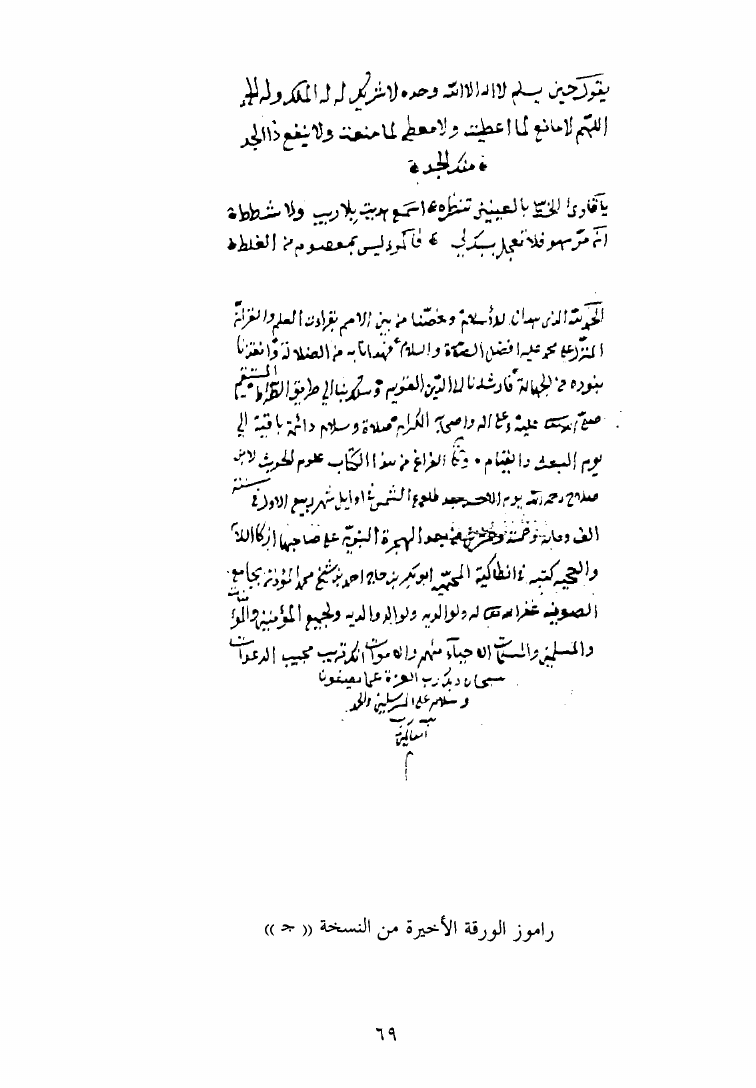 يقول حين يسلم لا اله الا الله وحده لا شريك له له الملك وله الحمد
اللهم لا مانع لما اعطيت ولا معطي لما منعت ولا ينفع ذا الجد
منك الجد
يا قارئ الخط بالعينين تنظره اسمع حديث بلا ريب ولا شططا
فلا تعجل ليس بمعصوم من الغلطا
الحمد لله الذي هدانا للاسلام وخصنا من بين الامم بقراءت العلم والقرأن
المنزل على محمد عليه افضل الصلاة والسلام فهدانا به من الضلالة وانقذنا
بنوره من الجهالة فارشدنا الى الدين القويم وسلك بنا الى طريق الصراط المستقيم
صلى الله عليه وعلى اله واصحابه الكرام صلاة وسلام دائمة باقية الى
يوم البعث والقيام وكان الفراغ من هذا الكتاب علوم الحديث لابن
صلاح رحمه الله يوم الاحد بعد طلوع الشمس في اوايل شهر ربيع الاول في سنة
الف ومائة وخمسة وعشرين بعد الهجرة النبوية على صاحبها
كتبه في انطاكية المحمية ابو بكر بن حاج احمد بن شيخ محمد المؤذن بجامع
الصوفية غفر الله له ولوالديه ولوالد والديه ولجميع المؤمنين والمؤمنات
والمسلمين والمسلمات الاحياء منهم والاموات انك قريب مجيب الدعوات
سبحان ربك رب العزة عما يصفون
وسلام على المرسلين والحمد
لله رب
العالمين
م
راموز الورقة الأخيرة من النسخة (( جـ ))
٦٩